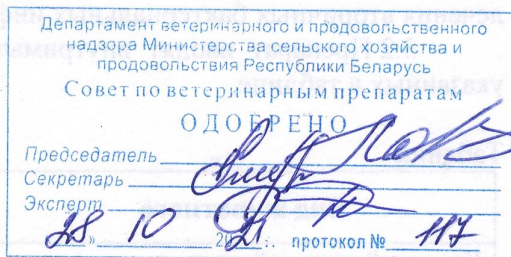 Департамент ветеринарного и продовольственного
надзора Министерства сельского хозяйства и
продовольствия Республики Беларусь
Совет по ветеринарным препаратам
ОДОБРЕНО
Председатель
Секретарь
Эксперт
28 » 10 2021 г. протокол № 117